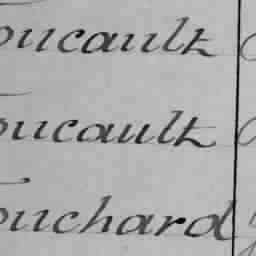 oucault
oucault
ouchard